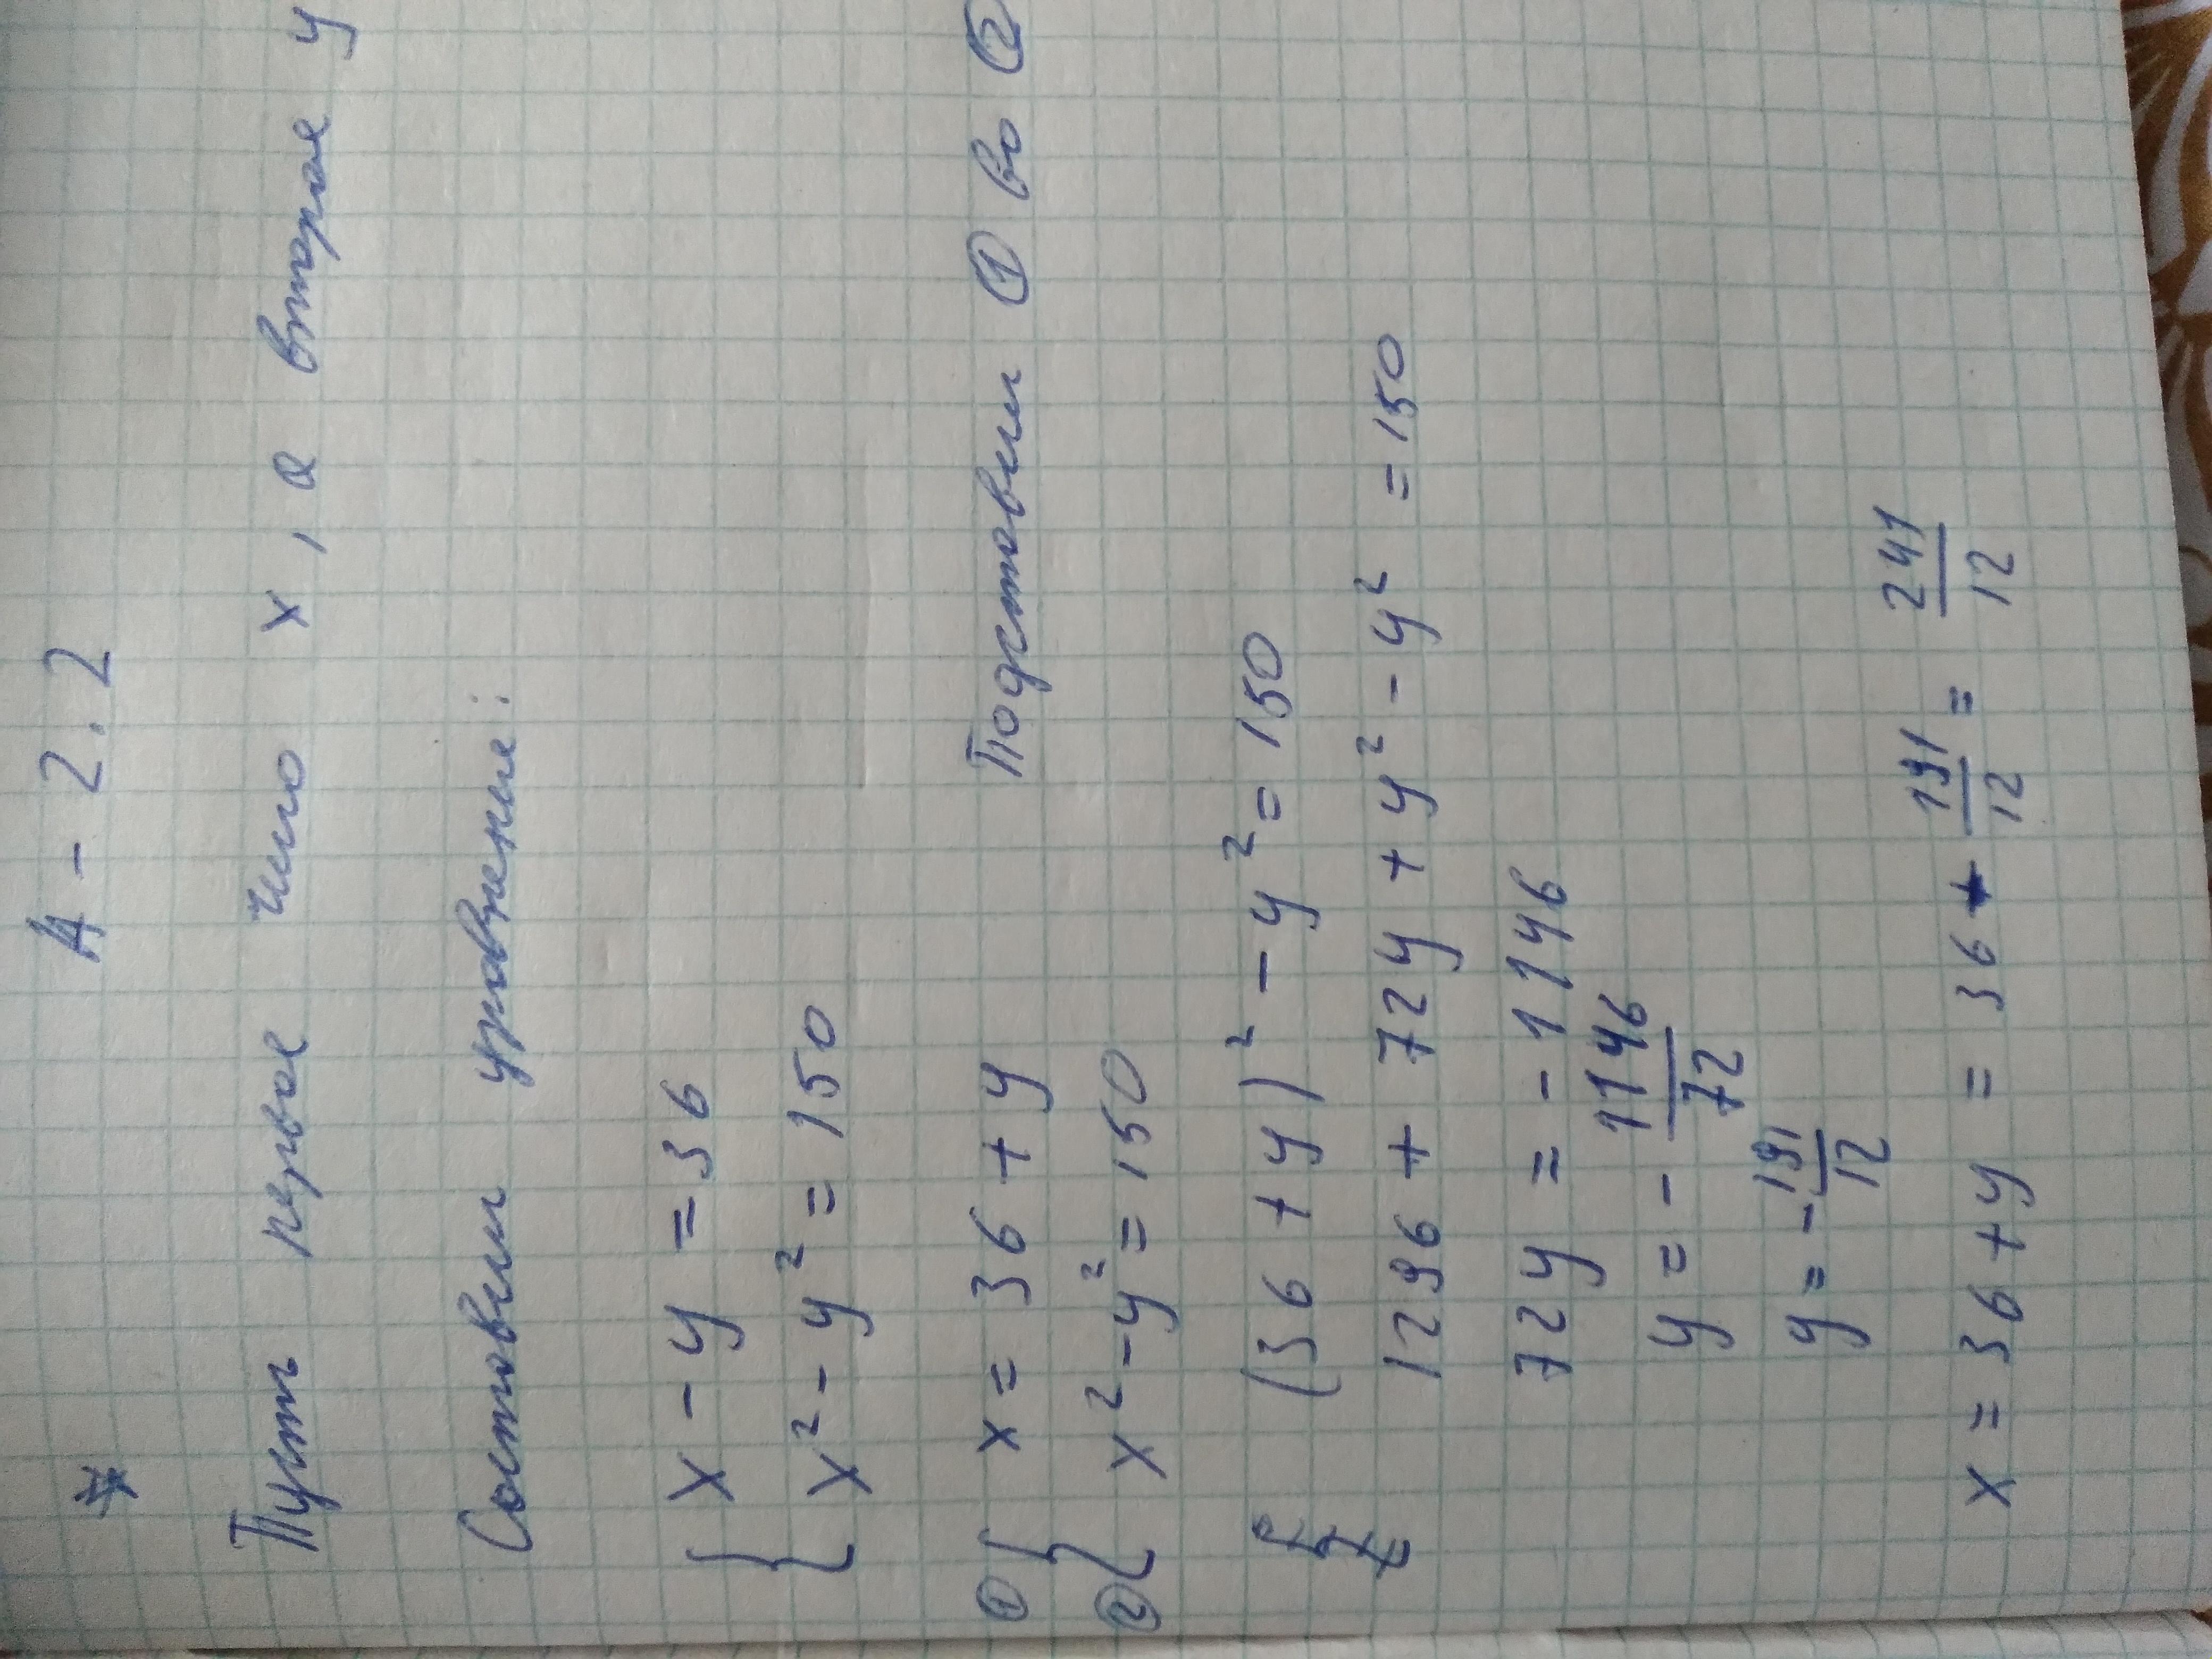 A - 2.2
Пусть первое число x, а второе y
Составим уравнение:
x - y = 36
x² - y² = 150
① x = 36 + y Подставим ① во ②
② x² - y² = 150
(36 + y)² - y² = 150
1296 + 72y + y² - y² = 150
72y = -1146
y = - 1146/72
y = - 191/12
x = 36 + y = 36 + 191/12 = 241/12